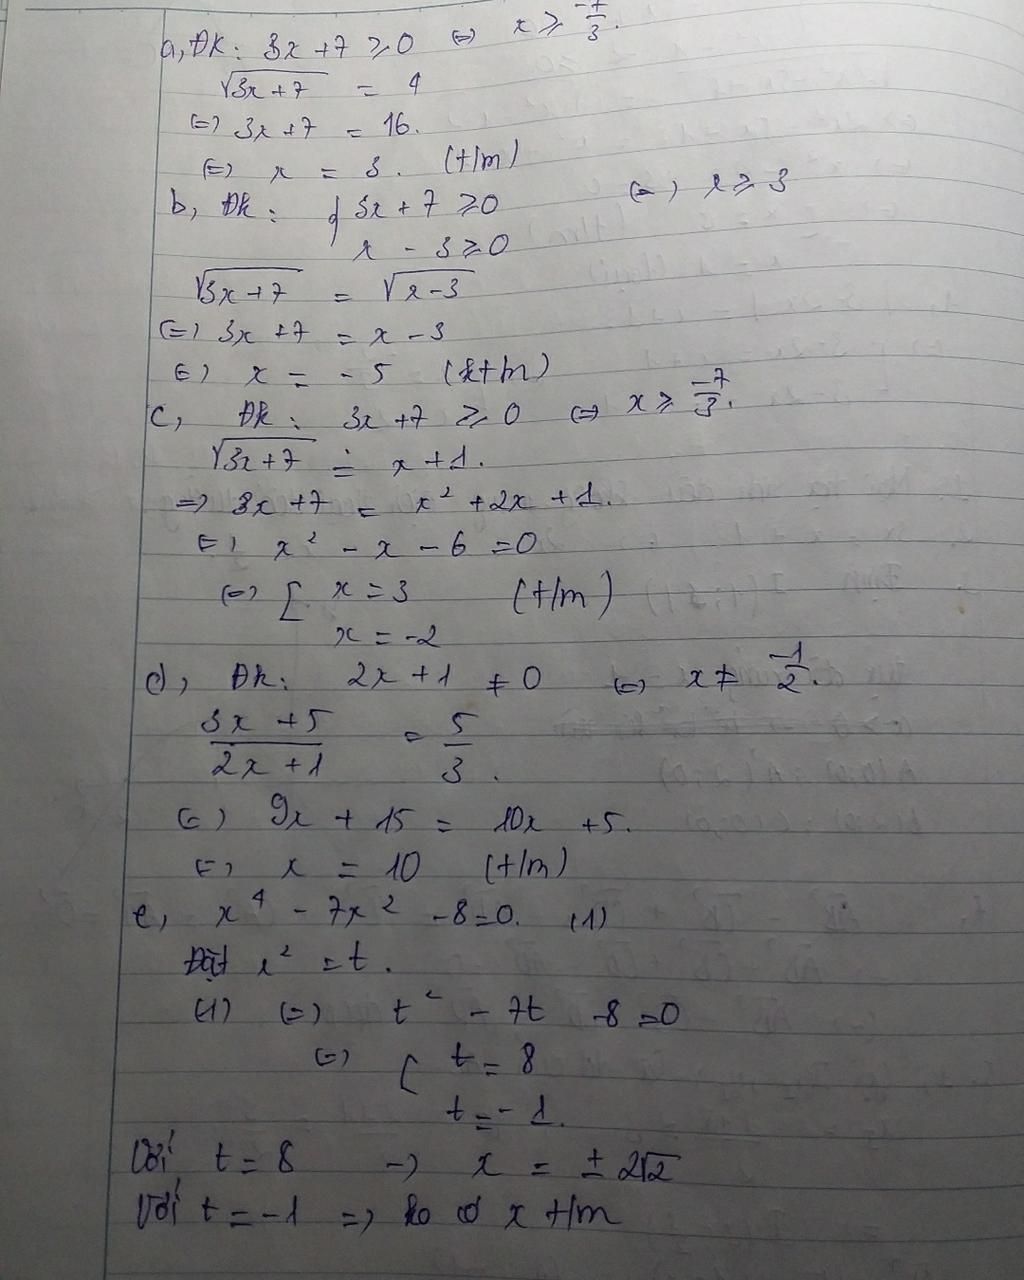 a, ĐK: 3x+7 ≥ 0 ⇔ x ≥ -7/3.
√(3x+7) = 4
⇔ 3x+7 = 16.
⇔ x = 3. (t/m)
b, Đk: { 3x+7 ≥ 0 ⇔ x ≥ 3
x - 3 ≥ 0
√(3x+7) = √(x-3)
⇔ 3x+7 = x-3
⇔ x = -5 (kt/m)
c, Đk: 3x+7 ≥ 0 ⇔ x ≥ -7/3.
√(3x+7) = x+1.
⇒ 3x+7 = x² + 2x + 1.
⇔ x² - x - 6 = 0
⇔ [ x = 3 (t/m)
x = -2
d, Đk: 2x+1 ≠ 0 ⇔ x ≠ -1/2.
(3x+5)/(2x+1) = 5/3.
⇔ 9x + 15 = 10x + 5.
⇔ x = 10 (t/m)
e, x⁴ - 7x² - 8 = 0. (1)
Đặt x² = t.
(1) ⇔ t² - 7t - 8 = 0
⇔ [ t = 8
t = -1.
Với t = 8 → x = ± 2√2
Với t = -1 ⇒ ko có x t/m